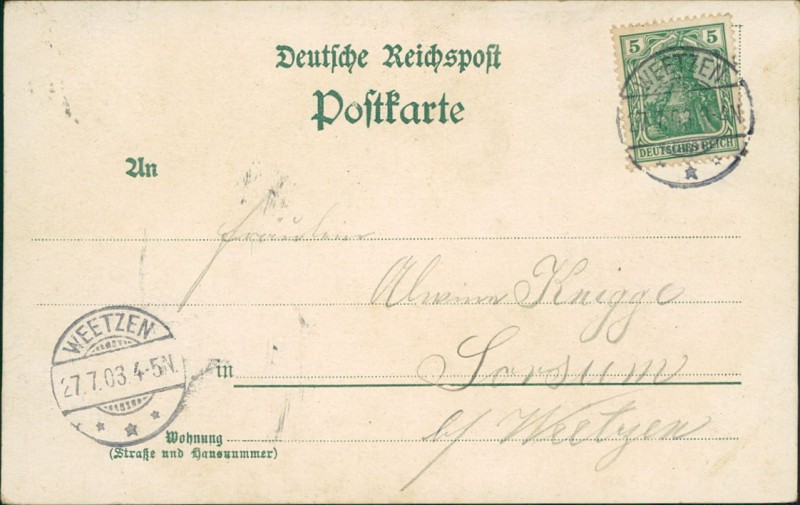 Deutsche Reichspost
Postkarte
5 5
DEUTSCHES REICH
WEETZEN
An
Fräulein
Alwine Knigge
in Sorsum
b/ Weetzen
WEETZEN
27.7.03.4-5N.
Wohnung
(Straße und Hausnummer)